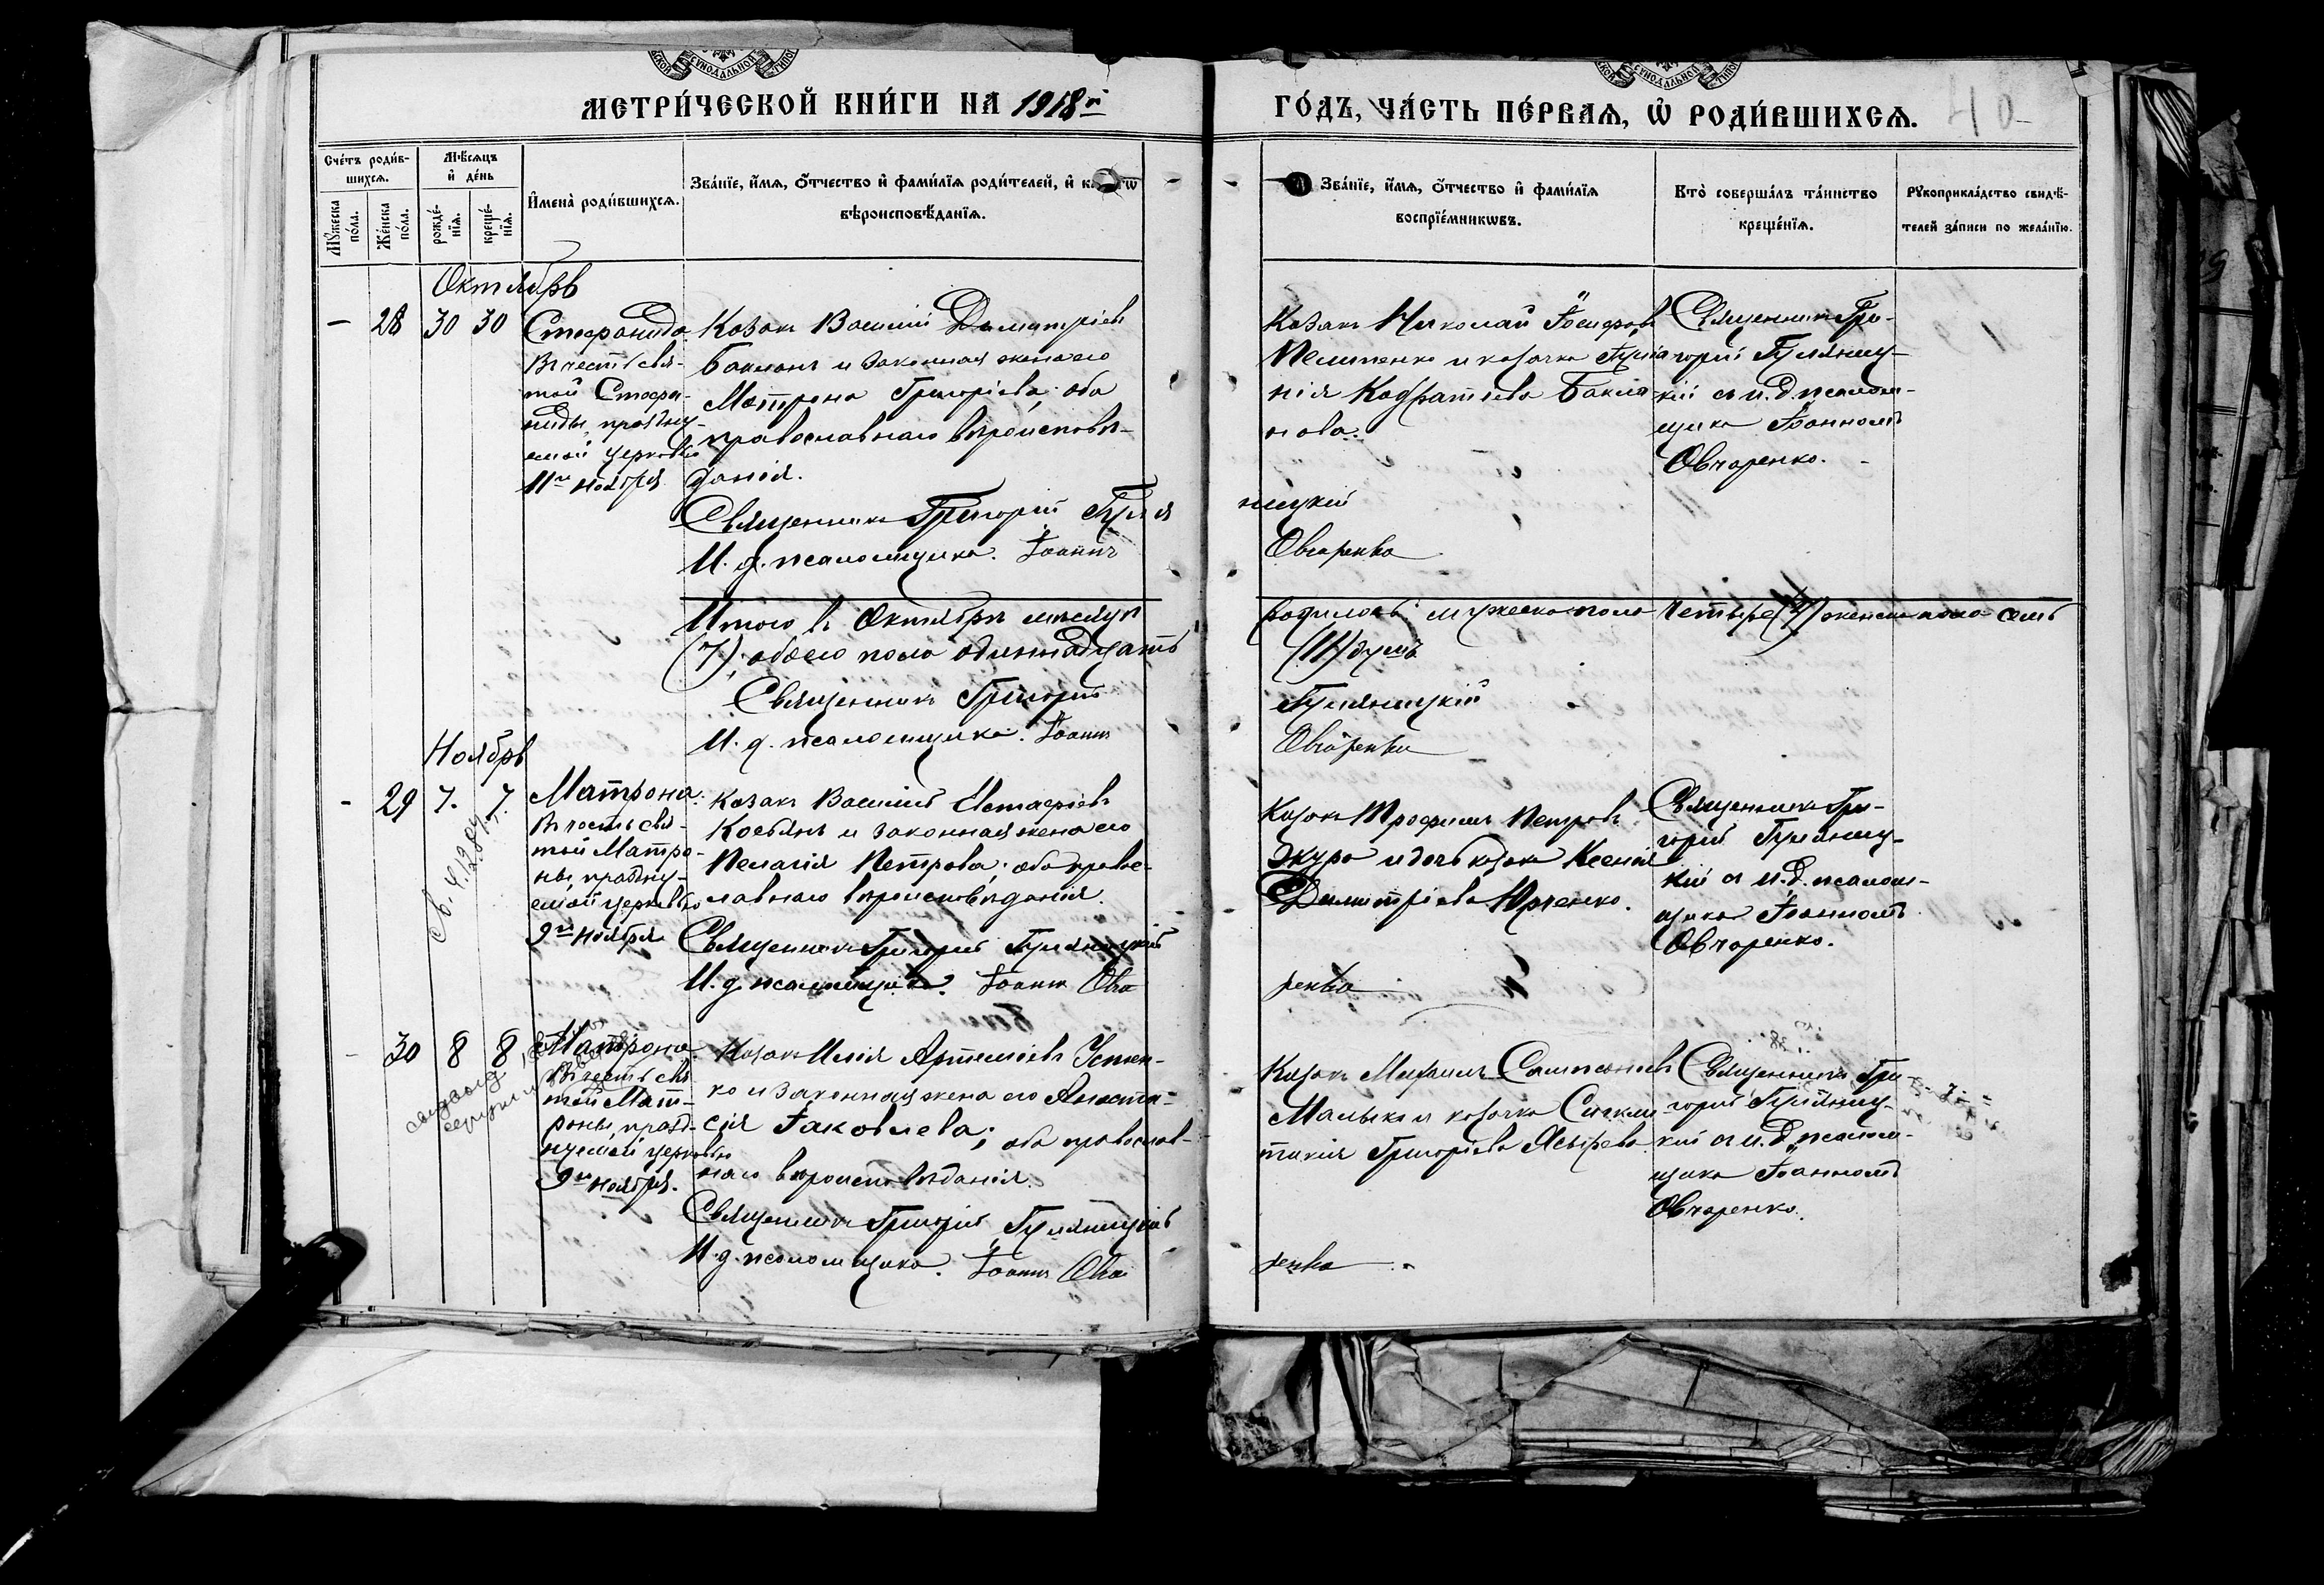 МЕТРИ́ЧЕСКОЙ КНИ́ГИ НА 1918й
ГО́ДЪ, ЧА́СТЬ ПЕ́РВАЯ, Ѡ РОДИ́ВШИХСЯ.
Сче́тъ роди́в-
шихся.
Мѣ́сяцъ
и де́нь
Му́жеска
по́ла.
Же́нска
по́ла.
рожде́-
нїя.
креще́-
нїя.
Имена̀ роди́вшихся.
Зва́нїе, и́мя, о́тчество и фами́лїя роди́телей, и
вѣроисповѣ́данїя.
Зва́нїе, и́мя, о́тчество и фами́лїя
воспрїе́мникѡвъ.
Кто̀ соверша́лъ та́инство
креще́нїя.
Рукоприкла́дство свидѣ́-
телей за́писи по жела́нїю.
Октябрь
— 28 30 30
Стефанида
Въ честь свя-
той Стефа-
ниды, праздну-
емой церковью
11го ноября
Козакъ Василий Димитріевъ
Баклан и законная жена его
Матрона Григоріева; оба
православнаго вѣроисповѣ-
данія.
Священникъ Григорій Гуля
И. д. псаломщика. Іоаннъ
Козакъ Николай Іосифовъ
и козачка
нія Кодратіева Бакла-
нова.
ницкій
Овчаренко
Священникъ Гри-
горій Гуляниц-
кій съ и.д. псалом-
щика Іоанномъ
Овчаренко.
Итого въ Октябрѣ мѣсяцѣ
(7); обоего пола одиннадцать
Священникъ Григорій
И. д. псаломщика. Іоаннъ
родилось: мужеска пола четыре (4) женска пола семь
(11) душъ
Гуляницкій
Овчаренко
Ноябрь
- 29 7. 7.
Матрона.
Въ честь свя-
той Матро-
ны, праздну-
емой церковью
9го ноября
Козакъ Василій Евстафіевъ
Косьянъ и законная жена его
Пелагія Петрова; оба правос-
лавнаго вѣроисповѣданія.
Священникъ Григорій Гуляницкій
И. д. псаломщика. Іоаннъ Овча
Козакъ Трофимъ Петровъ
Джура и дочь козака Ксенія
Димитріева Юрченко.
ренко
Священникъ Гри-
горій Гуляниц-
кій съ и.д. псалом-
щика Іоанномъ
Овчаренко.
- 30 8 8
Матрона
Въ честь свя
той Мат-
роны, празд-
нуемой церковью
9го ноября.
Козакъ Илія Артеміевъ Устен-
ко и законная жена его Анаста-
сія Іаковлева; оба православ-
наго вѣроисповѣданія.
Священникъ Григорій Гуляницкій
И. д. псаломщика. Іоаннъ Овча
Козакъ Михаилъ Сампсоніевъ
Малыка и козачка Синкли-
тикія Григоріева
ренко
Священникъ Гри-
горій Гуляниц-
кій съ и.д. псалом-
щика Іоанномъ
Овчаренко.